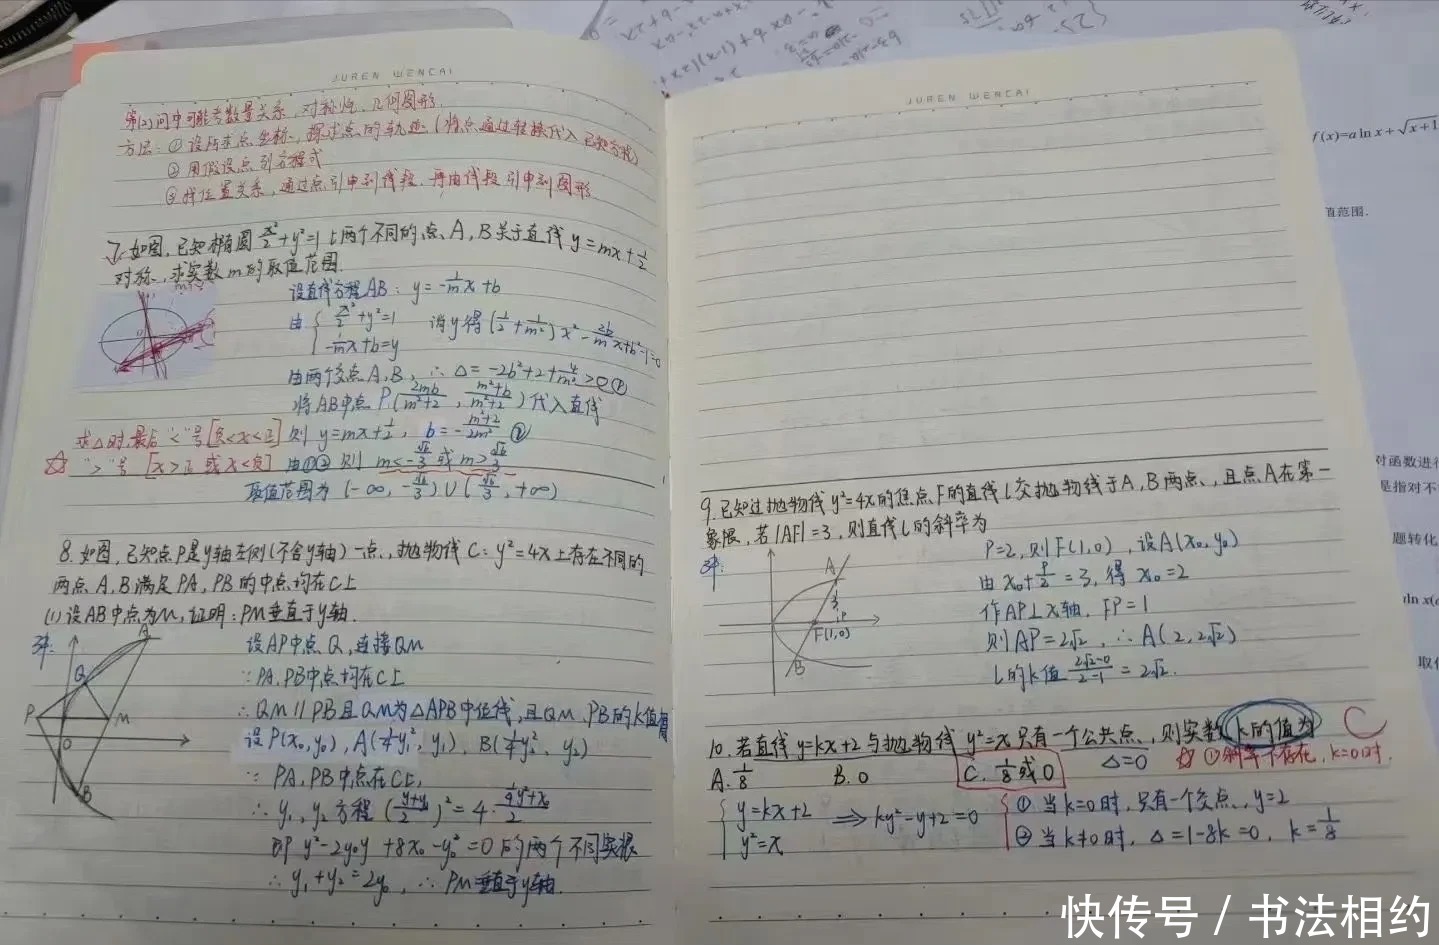 JUREN WENCAI
第(2)问中可能考数量关系、对称性、几何图形.
方法：①设所求点坐标，探求点的轨迹(将点通过转换代入已知方程)
②用假设点列方程式
③找位置关系，通过点引申到线段，再由线段引申到图形
7.如图，已知椭圆x²/2+y²=1上两个不同的点A,B关于直线y=mx+1/2
对称，求实数m的取值范围.
设直线方程AB：y=-1/m x+b
由{x²/2+y²=1
-1/m x+b=y
消y得(1/2+1/m²)x²-2b/m x+b²-1=0
由两个交点A,B，∴Δ=-2b²+2+4/m²>0①
将AB中点P(2mb/(m²+2), (m²+b)/(m²+2))代入直线
则y=mx+1/2，b=-(m²+2)/2m² ②
求Δ时,最后"<"号[负<x<正]
☆ ">"号 [x>正 或 x<负]
由①②则 m<-√6/3 或 m>√6/3
取值范围为(-∞,-√6/3)∪(√6/3,+∞)
8.如图，已知点P是y轴左侧(不含y轴)一点，抛物线C：y²=4x上存在不同的
两点A,B满足PA，PB的中点均在C上
(1)设AB中点为M，证明：PM垂直于y轴.
设AP中点Q，连接QM
∵PA.PB中点均在C上
∴QM∥PB且QM为△APB中位线，且QM、PB的k值
设P(x₀,y₀)，A(1/4y₁²,y₁)、B(1/4y₂²,y₂)
∵PA,PB中点在C上，
∴y₁,y₂方程((y+y₀)/2)²=4·(1/4y²+x₀)/2
即y²-2y₀y+8x₀-y₀²=0的两个不同实根
∴y₁+y₂=2y₀，∴PM垂直于y轴.
A
Q
P
M
O
B
JUREN WENCAI
9.已知过抛物线y²=4x的焦点F的直线l交抛物线于A,B两点，且点A在第一
象限，若|AF|=3，则直线l的斜率为
P=2，则F(1,0)，设A(x₀,y₀)
由x₀+P/2=3，得x₀=2
作AP⊥x轴，FP=1
则AP=2√2，∴A(2,2√2)
l的k值(2√2-0)/(2-1)=2√2.
A
3
P
F(1,0)
B
10.若直线y=kx+2与抛物线y²=x只有一个公共点，则实数k的值为 C
A.1/8 B.0 C.1/8或0 Δ=0 ☆①斜率不存在，k=0时.
{y=kx+2
y²=x
⇒ky²-y+2=0
{①当k=0时，只有一个交点，y=2
②当k≠0时，Δ=1-8k=0，k=1/8
f(x)=aln x+√x+1
值范围.
对函数进行
是指对不
题转化
取
快传号 / 书法相约